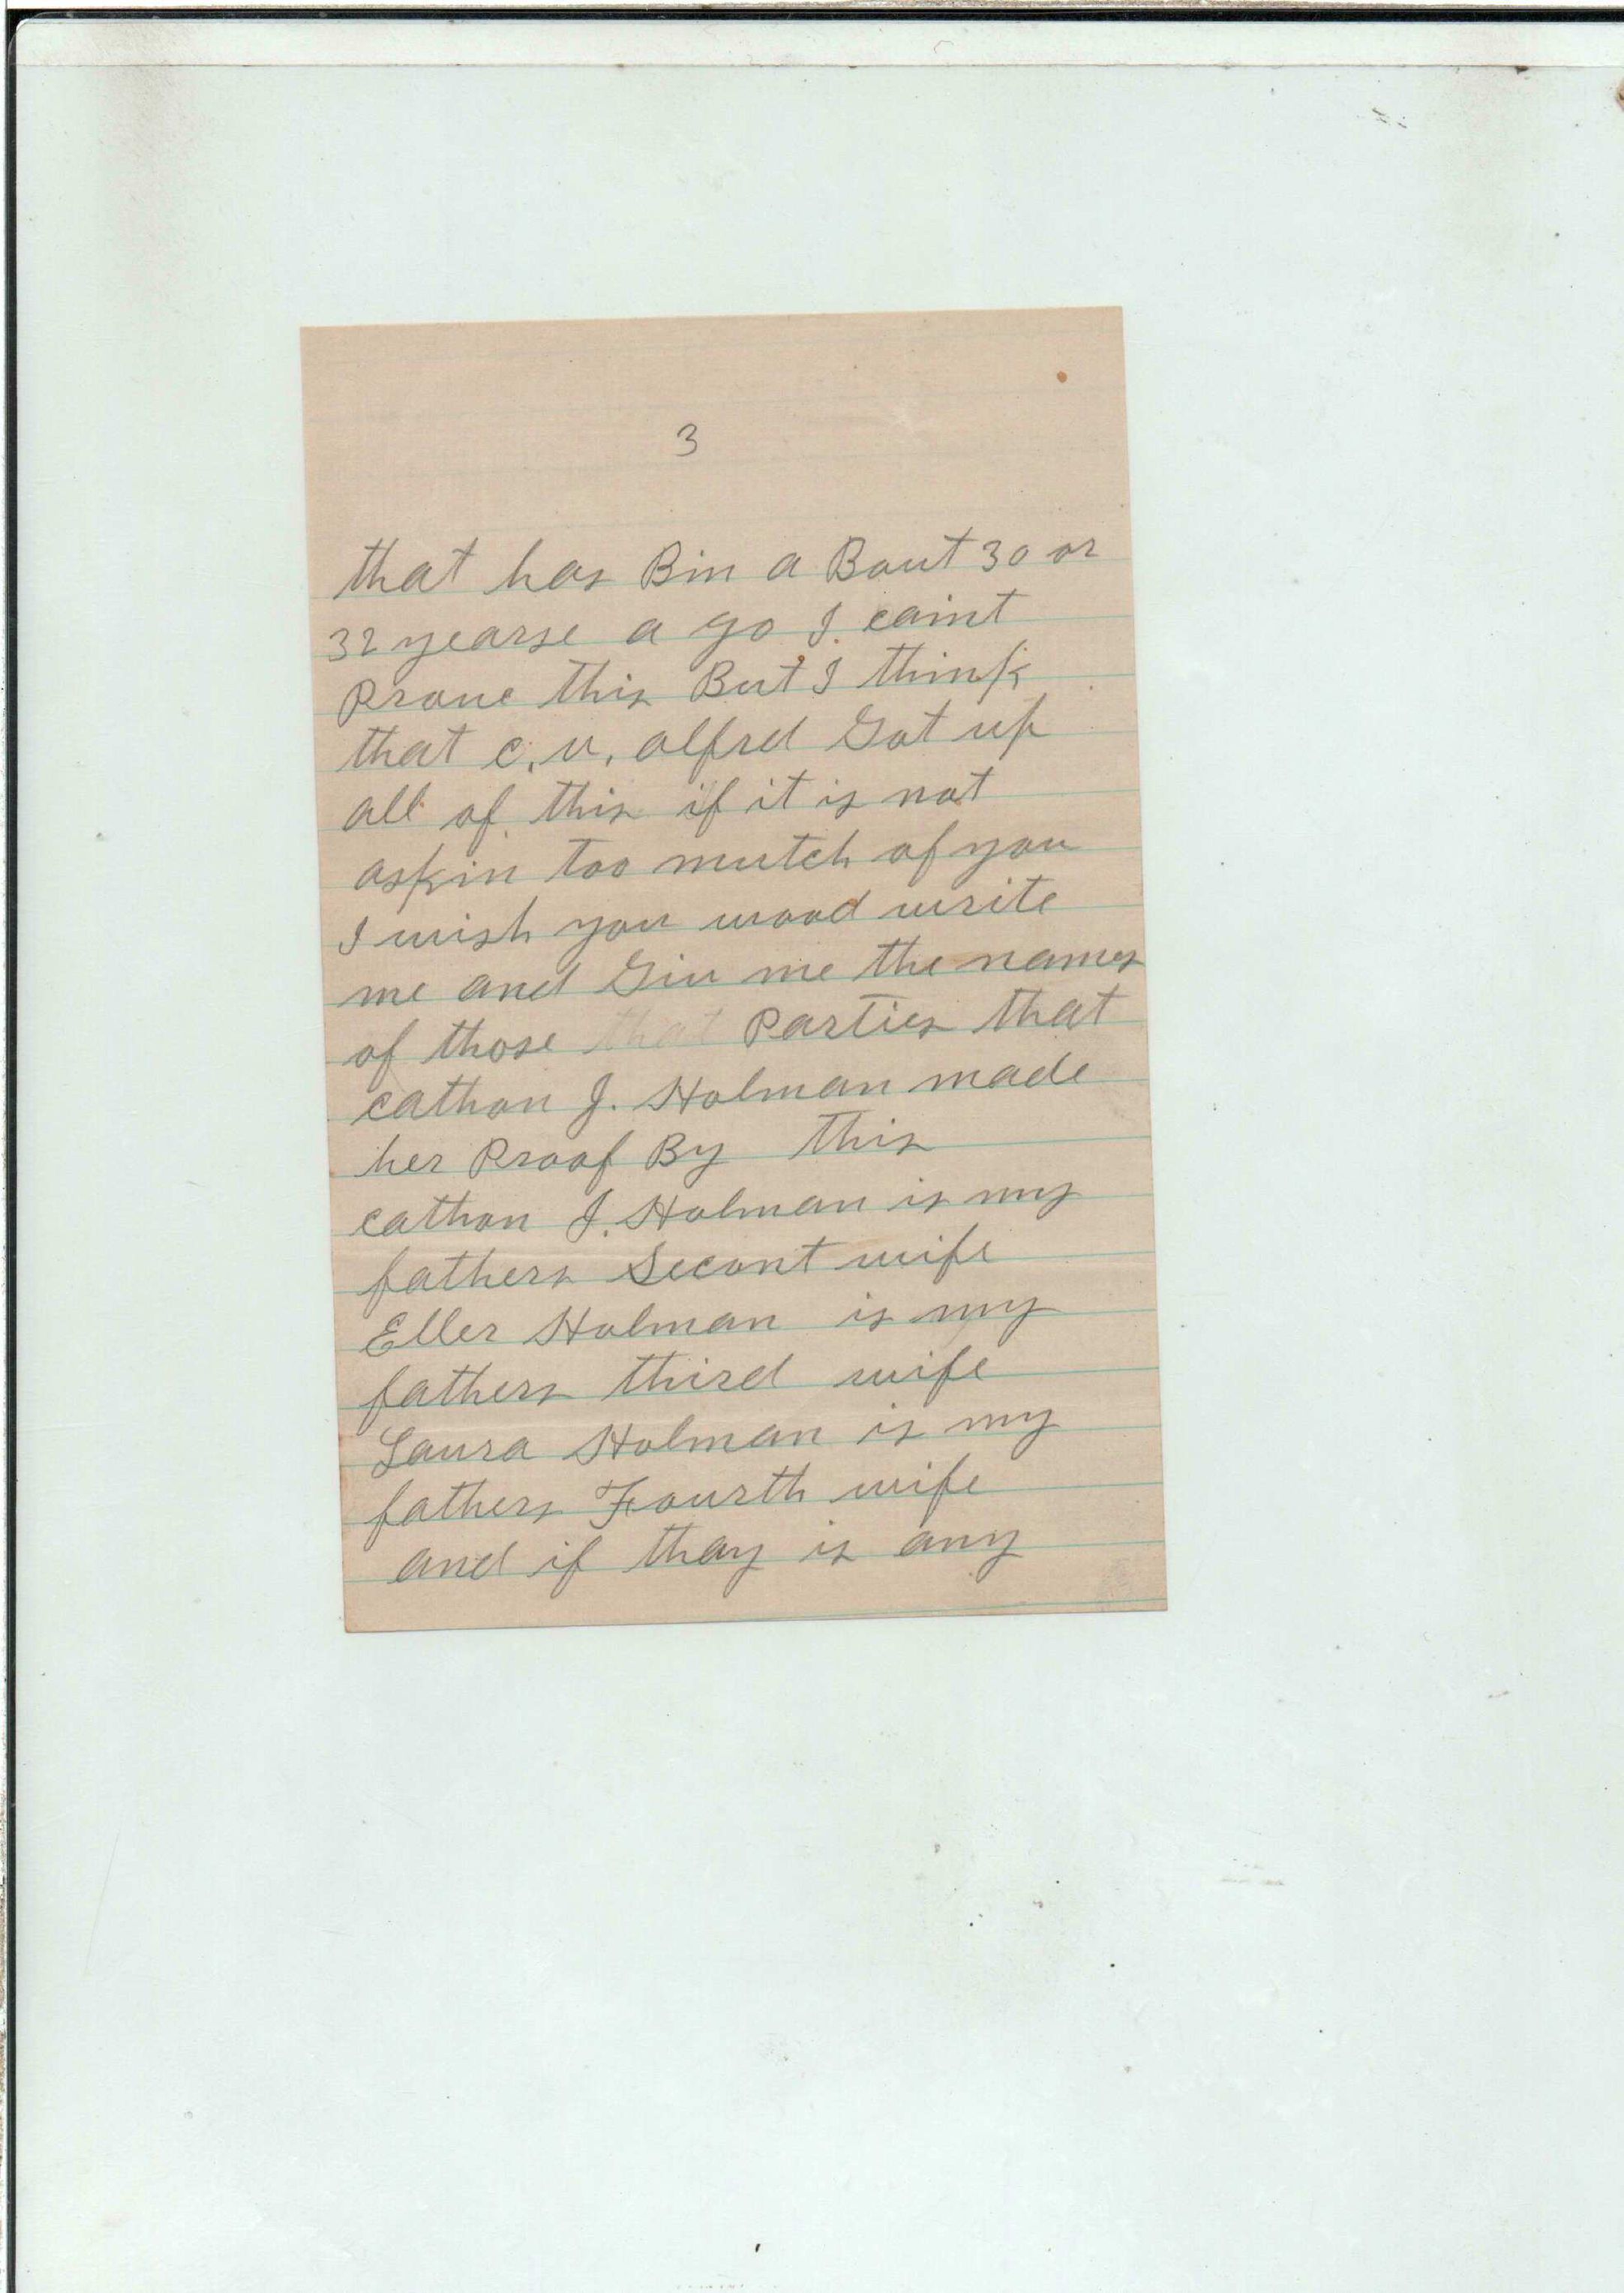 3
that has Bin a Bout 30 or
32 yearse a go I caint
Prove this But I think
that c, v, alfrd Got up
all of this if it is not
askin too mutch of you
I wish you wood write
me and Giv me the names
of those that Parties that
cathon J. Holman made
her Proof By this
cathon J. Holman is my
fathers Secont wife
Eller Holman is my
fathers third wife
Laura Holman is my
fathers Fourth wife
and if thay is any